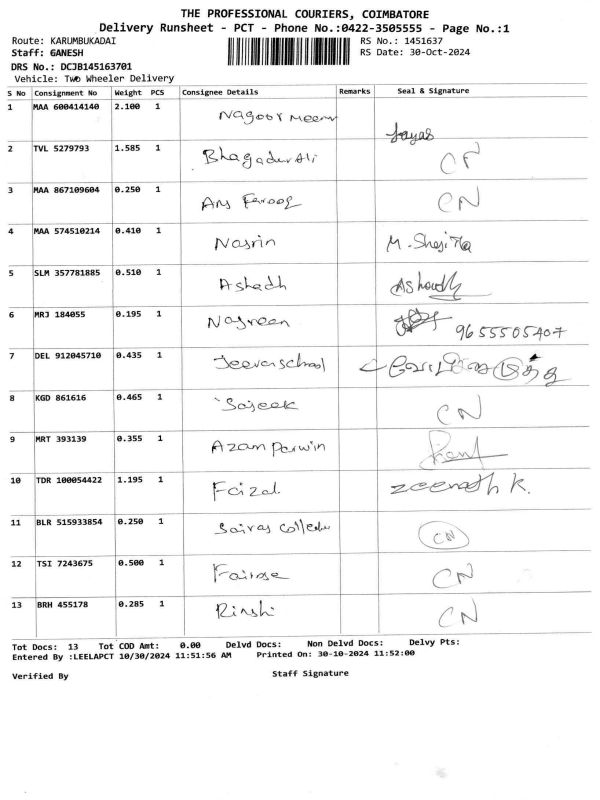 THE PROFESSIONAL COURIERS, COIMBATORE
Delivery Runsheet - PCT - Phone No.:0422-3505555 - Page No.:1
Route: KARUMBUKADAI RS No.: 1451637
Staff: GANESH RS Date: 30-Oct-2024
DRS No.: DCJB145163701
Vehicle: Two Wheeler Delivery
S No Consignment No Weight PCS Consignee Details Remarks Seal & Signature
1 MAA 600414140 2.100 1 Nagoor Meeran
2 TVL 5279793 1.585 1 Bhagadur Ali
3 MAA 867109604 0.250 1 Farooq CN
4 MAA 574510214 0.410 1 Nasrin
5 SLM 357781885 0.510 1 Ashadh
6 MRJ 184055 0.195 1 Nasreen 9655505407
7 DEL 912045710 0.435 1
8 KGD 861616 0.465 1 Sajeek CN
9 MRT 393139 0.355 1 Azam Parwin
10 TDR 100054422 1.195 1 Faizal zeenath k.
11 BLR 515933854 0.250 1 CN
12 TSI 7243675 0.500 1 Fairose CN
13 BRH 455178 0.285 1 Rinshi CN
Tot Docs: 13 Tot COD Amt: 0.00 Delvd Docs: Non Delvd Docs: Delvy Pts:
Entered By :LEELAPCT 10/30/2024 11:51:56 AM Printed On: 30-10-2024 11:52:00
Verified By Staff Signature